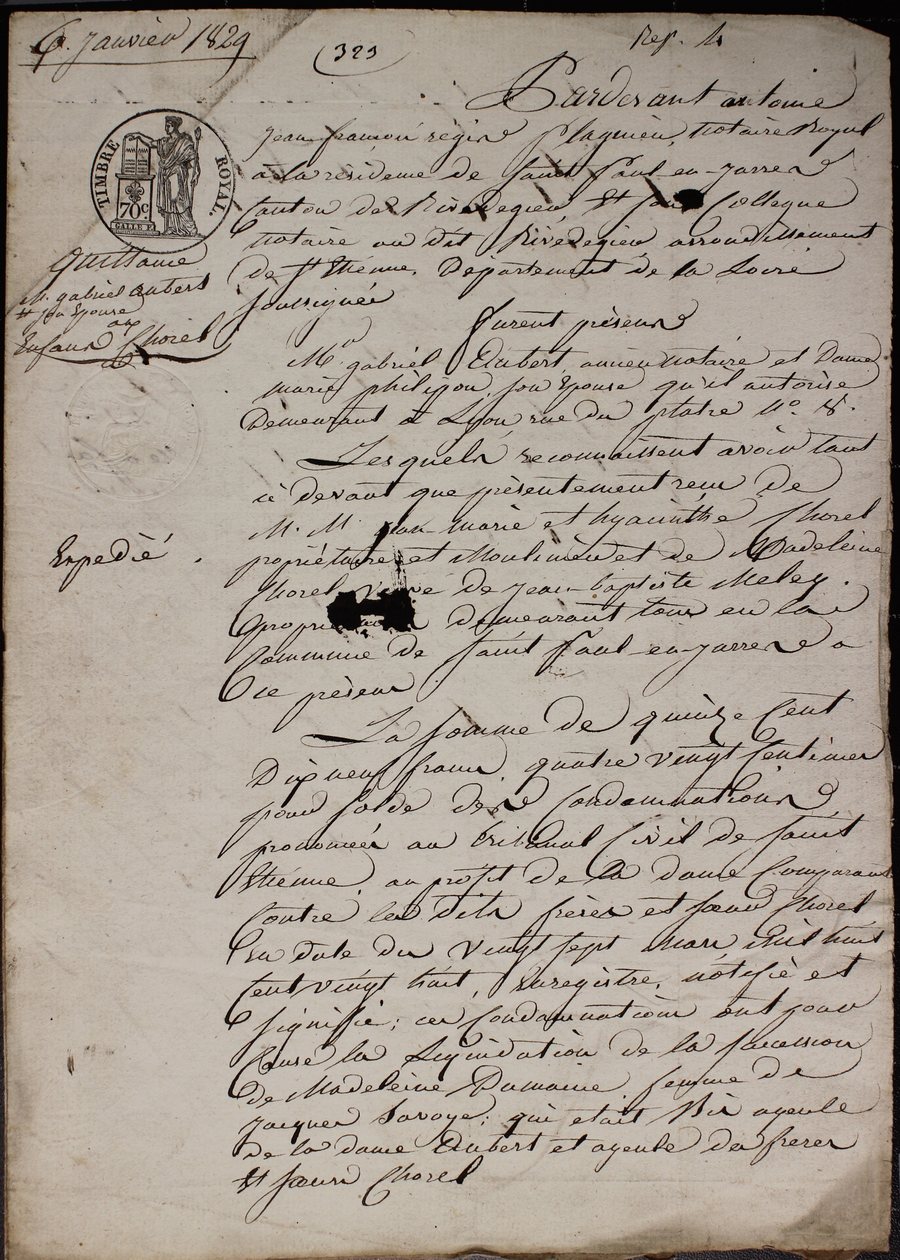 6. Janvier 1829
(323)
Rep. 4
Pardevant antoine
jean françois régis Flaguieu, notaire Royal
a la résidence de Saint Paul-en-jarret
Canton de Rivedegier, et son Collegue
notaire au dit Rivedegier arrondissement
de St Etienne, Département de la Loire
soussignés
TIMBRE ROYAL.
70c
quittance
M. gabriel aubert
et son Epouse
aux
Enfans Chorel
furent présens
Mr. gabriel Aubert, ancien notaire et Dame
marie philipon, son Epouse qu'il autorise
Demeurant à Lyon, rue du platre No. 8.
Lesquels reconnaissent avoir tant
ci devant que présentement recu de
M. M. jean-marie et hyacinthe Chorel
propriétaires et Mouliniers et de Madeleine
Chorel veuve de jean-baptiste Meley.
demeurant tous en la
Commune de Saint Paul-en-jarret a
ce présens
Expedié
La somme de quinze Cent
Dix neuf francs, quatre vingt Centimes
pour solde des Condamnations
prononcées au tribunal Civil de Saint
Etienne, au profit de la dame Comparante
Contre les dits frères et sœur Chorel
en date du vingt sept mars mil huit
Cent vingt huit, enregistré, notifié et
signifié; ces Condamnations ont pour
Cause la Liquidation de la succession
de Madeleine Damaine femme de
jacques Savoye; qui etait Bis ayeule
de la dame Aubert et ayeule des freres
et sœurs Chorel